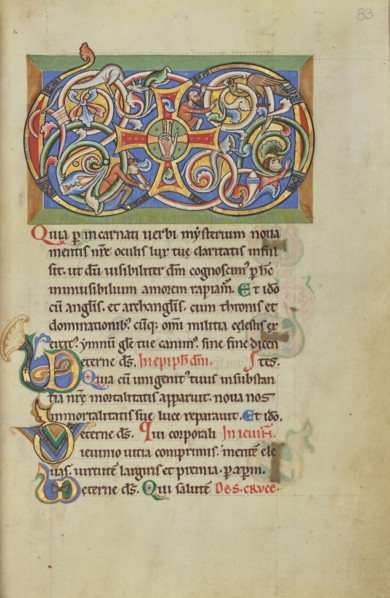 83
Quia p incarnati verbi mysterium noua
mentis nr̄e oculis lux tue claritatis inful
sit. ut dū uisibiliter dm̄ cognoscimꝰ p hc̄
inuisibilium amorem rapiam̄. Et ido
cū anglis. et archanglis. cum thronis et
dominationibꝰ. cūq; om̄i militia celestis ex
ercitꝰ. ymnū glē tue canimꝰ. sine fine dicen
eterne ds̄. In epiph dn̄i. tes.
Quia cū unigenitꝰ tuus in substan
tia nr̄e mortalitatis apparuit. noua nos
immortalitatis sue luce reparauit. Et ido.
eterne ds̄. Qui corporali In ieiun̄.
ieiunio uitia comprimis. mentē ele
uas. uirtutē largiris et premia. p xp̄m.
eterne ds̄. Qui salutē De s. cruce.